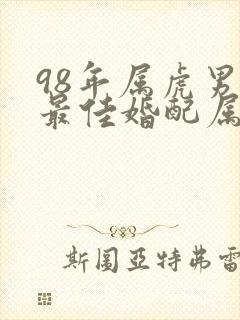 98年属虎男
最佳婚配属
斯图亚特弗雷